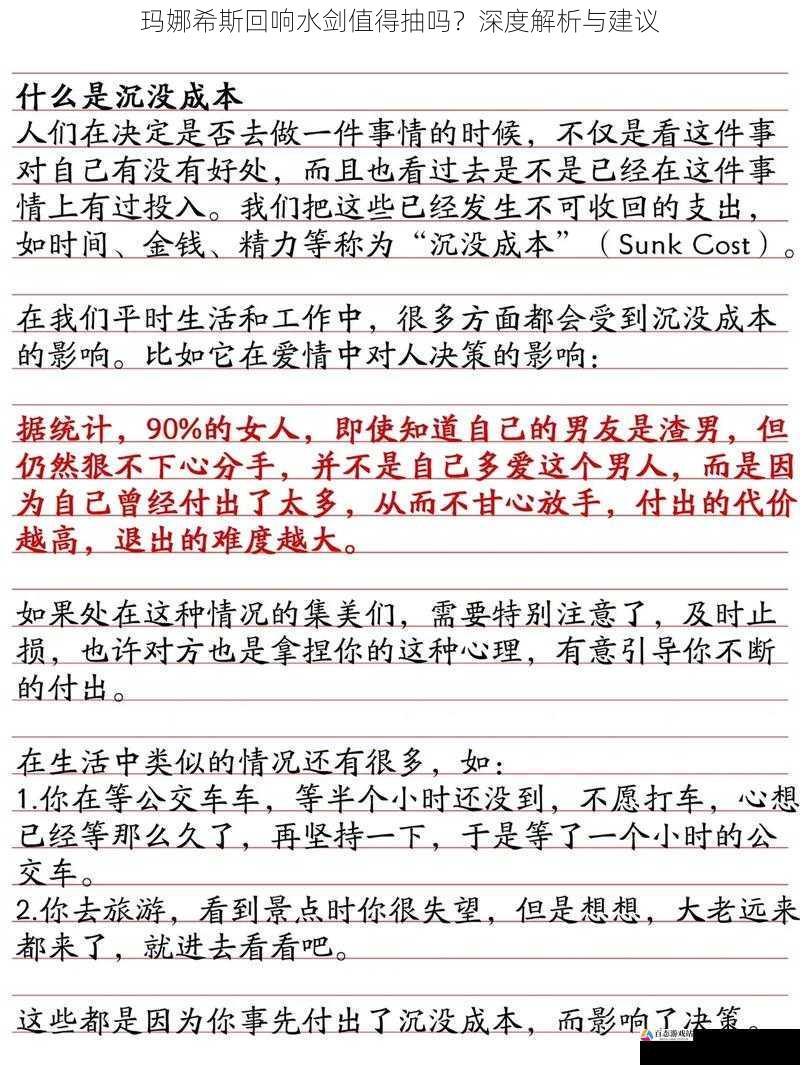 玛娜希斯回响水剑值得抽吗？深度解析与建议
什么是沉没成本
人们在决定是否去做一件事情的时候，不仅是看这件事
对自己有没有好处，而且也看过去是不是已经在这件事
情上有过投入。我们把这些已经发生不可收回的支出，
如时间、金钱、精力等称为“沉没成本”（Sunk Cost）。
在我们平时生活和工作中，很多方面都会受到沉没成本
的影响。比如它在爱情中对人决策的影响：
据统计，90%的女人，即使知道自己的男友是渣男，但
仍然狠不下心分手，并不是自己多爱这个男人，而是因
为自己曾经付出了太多，从而不甘心放手，付出的代价
越高，退出的难度越大。
如果处在这种情况的集美们，需要特别注意了，及时止
损，也许对方也是拿捏你的这种心理，有意引导你不断
的付出。
在生活中类似的情况还有很多，如：
1.你在等公交车车，等半个小时还没到，不愿打车，心想
已经等那么久了，再坚持一下，于是等了一个小时的公
交车。
2.你去旅游，看到景点时你很失望，但是想想，大老远来
都来了，就进去看看吧。
这些都是因为你事先付出了沉没成本，而影响了决策。
百态游戏站